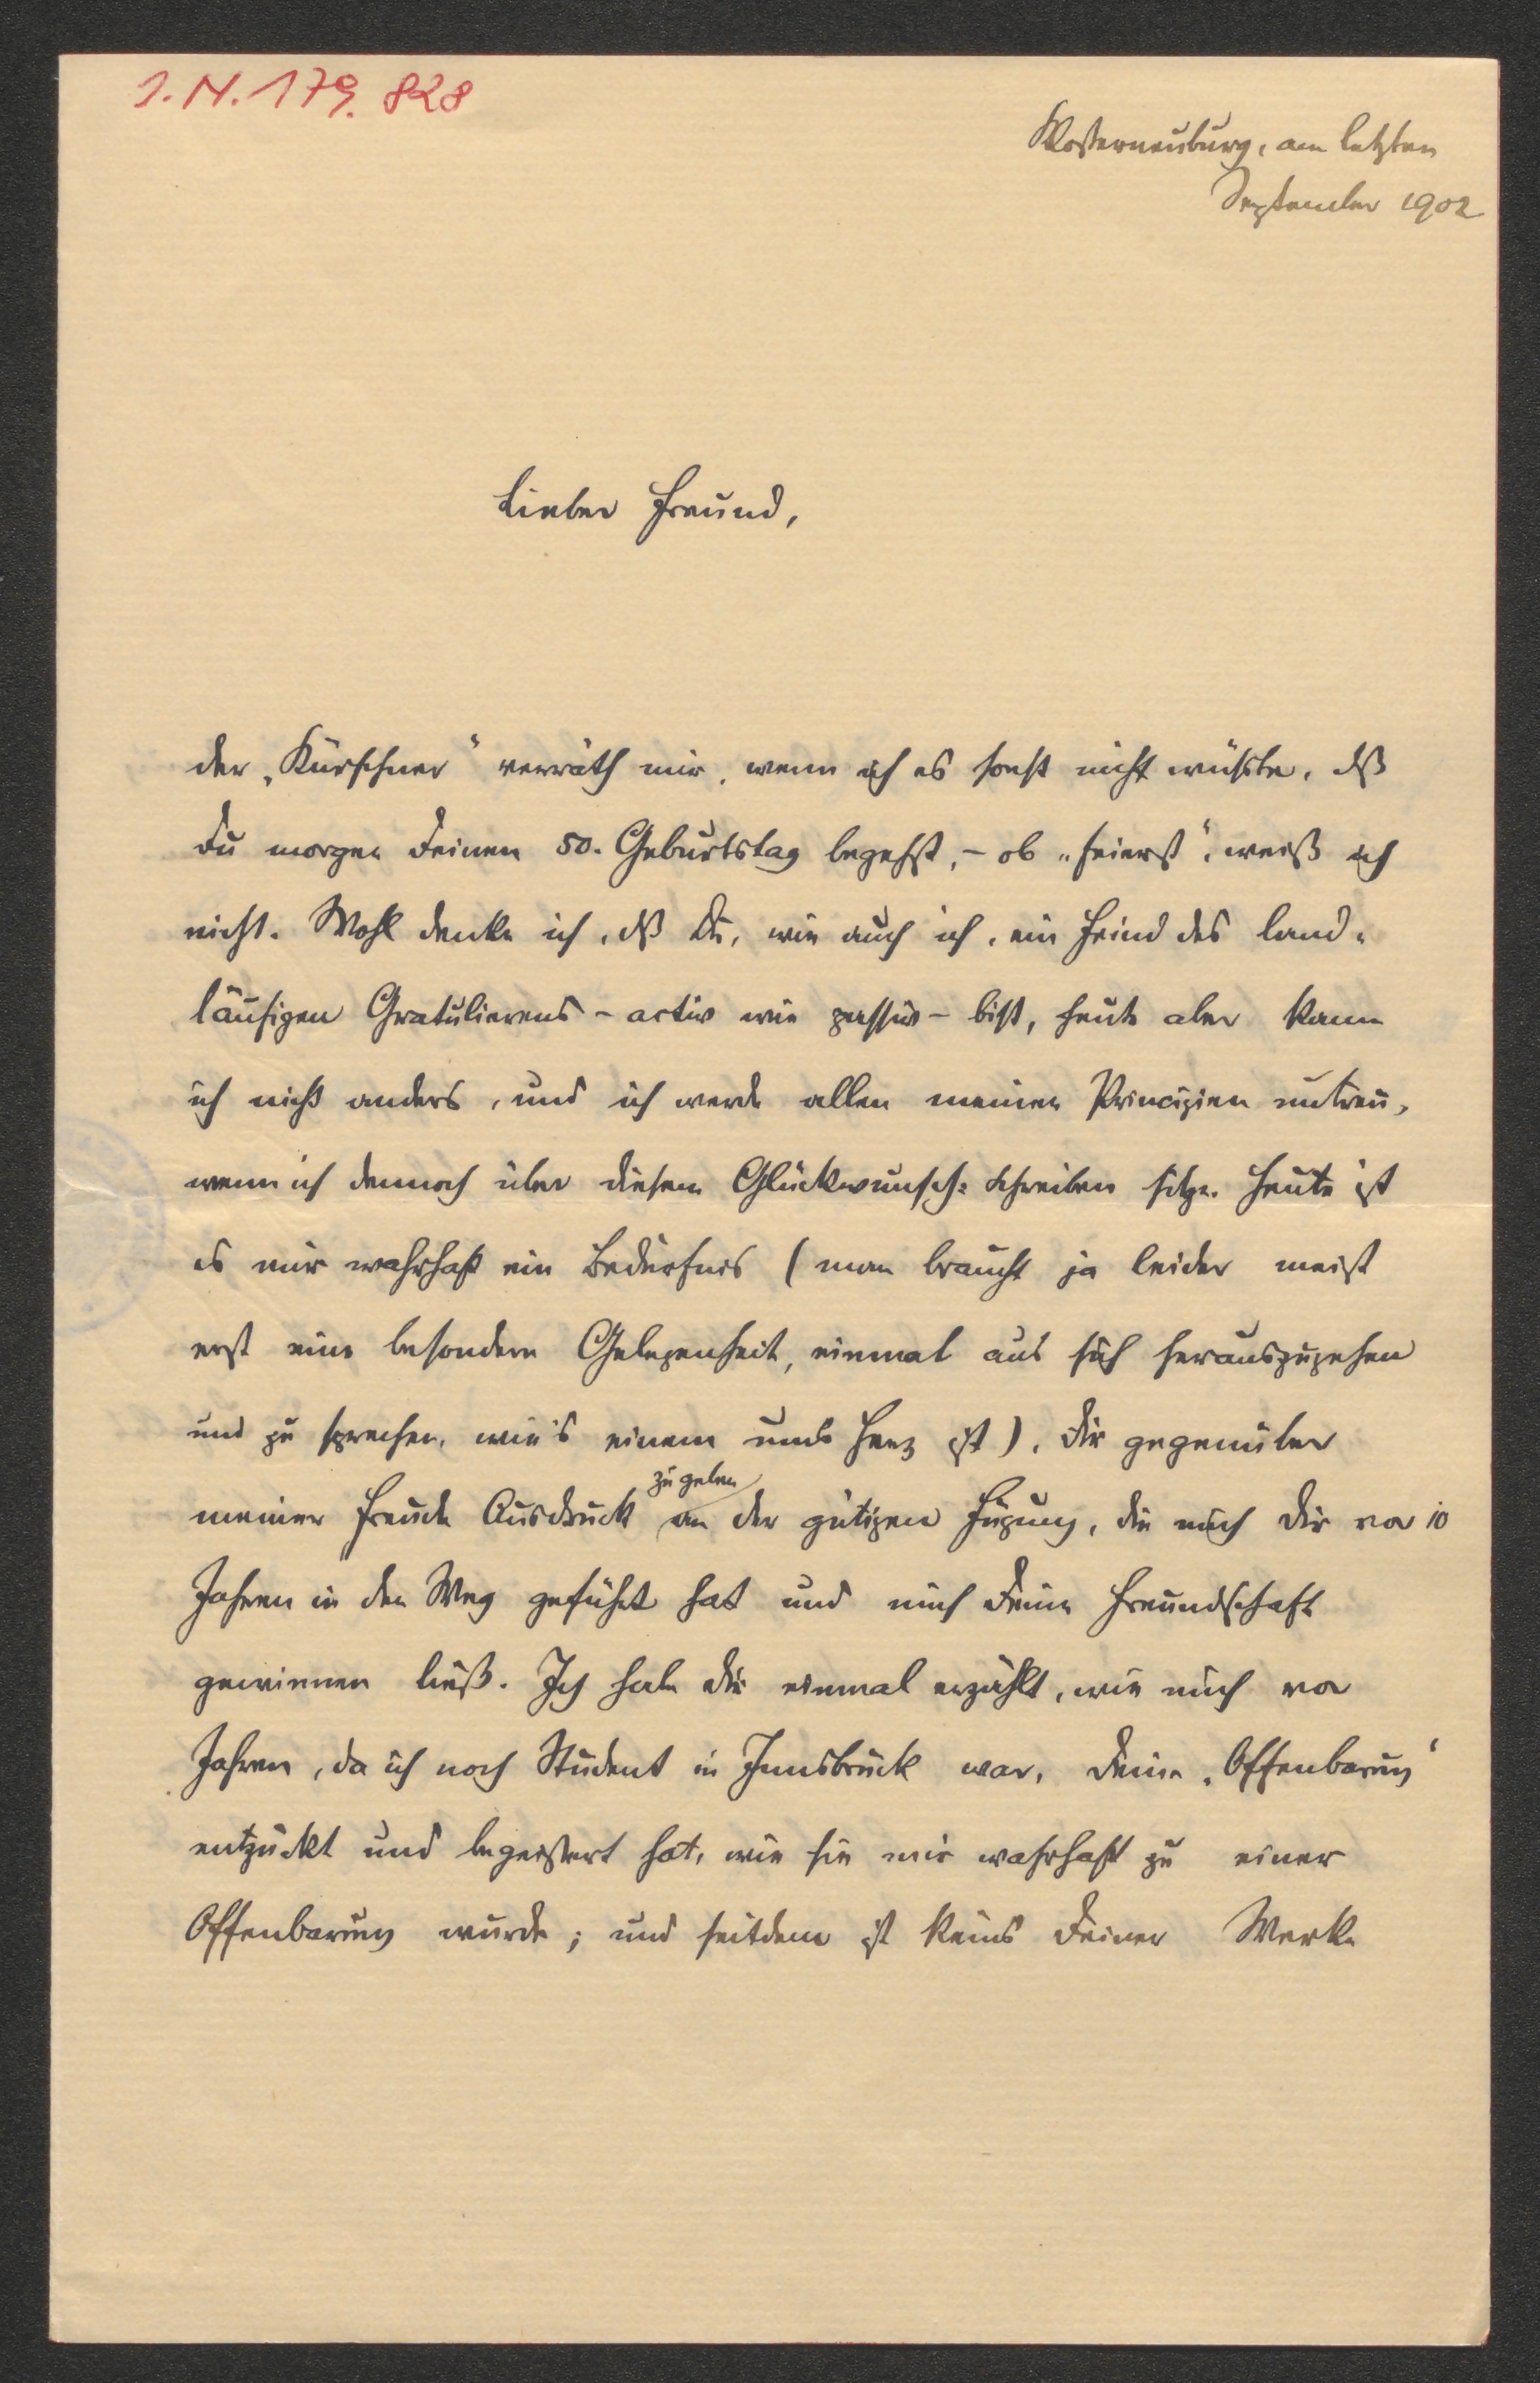 I.N. 179.828
Klosterneuburg, am letzten
September 1902
Lieber Freund,
der „Kürschner“ verräth mir, wenn ich es sonst nicht wüßte, dß
Du morgen Deinen 50. Geburtstag begehst, – ob „feierst“, weiß ich
nicht. Wohl denke ich, dß Du, wie auch ich, ein Feind des land-
läufigen Gratulierens – activ wie passiv – bist, heute aber kann
ich nicht anders, und ich werde allen meinen Principien untreu,
wenn ich dennoch über diesem Glückwunsch-Schreiben sitze. Heute ist
es mir wahrhaft ein Bedürfnis (man braucht ja leider meist
erst eine besondere Gelegenheit, einmal aus sich herauszugehen
und zu sprechen, wie's einem ums Herz ist), Dir gegenüber
meiner Freude Ausdruck zu geben an der gütigen Fügung, die mich Dir vor 10
Jahren in den Weg geführt hat und mich Deine Freundschaft
gewinnen ließ. Ich habe Dir einmal erzählt, wie mich vor
Jahren, da ich noch Student in Innsbruck war, Deine „Offenbarung“
entzückt und begeistert hat, wie sie mir wahrhaft zu einer
Offenbarung wurde; und seitdem ist keins Deiner Werke